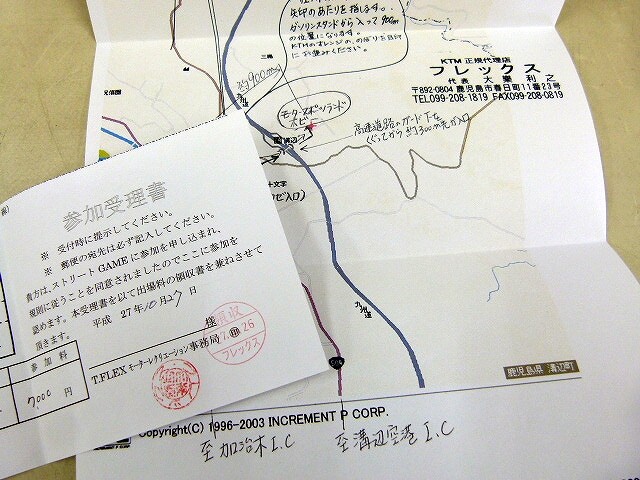 矢印のあたりを指します。
ガソリンスタンドから入って900m
の位置になります。
KTMのオレンジの、のぼりを目印
にお進みください。
約900m
KTM 正規代理店
フレックス
代 表 大 樂 利 之
〒892-0804 鹿児島市春日町11番23号
TEL099-208-1819 FAX099-208-0819
モータースポーツランド
高速道路のガード下を
くぐってから約300m先が入口
十文字
九州道
九州道
鹿児島県 溝辺町
Copyright(C) 1996-2003 INCREMENT P CORP.
至 加治木 I.C
至 溝辺空港 I.C
参加受理書
※ 受付時に提示してください。
※ 郵便の宛先は必ず記入してください。
貴方は、ストリートGAMEに参加を申し込まれ、
規則に従うことを同意されましたのでここに参加を
認めます。本受理書を以て出場料の領収書を兼ねさせて
頂きます。
平成 27年10月27日
様
T.FLEX モーターレクリエーション事務局 ㊞
領収
フレックス
参 加 料
7,000 円